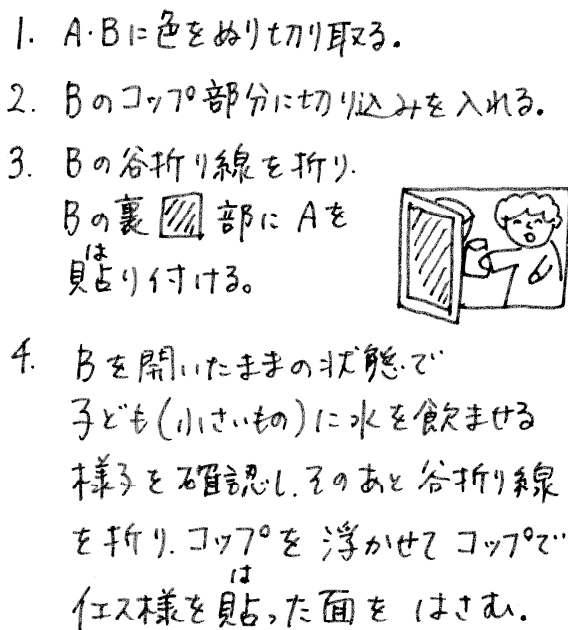 1. A・Bに色をぬり切り取る。
2. Bのコップ部分に切り込みを入れる。
3. Bの谷折り線を折り、
Bの裏 部にAを
は
貼り付ける。
4. Bを開いたままの状態で
子ども(小さいもの)に水を飲ませる
様子を確認し、そのあと谷折り線
を折り、コップを浮かせてコップで
は
イエス様を貼った面をはさむ。